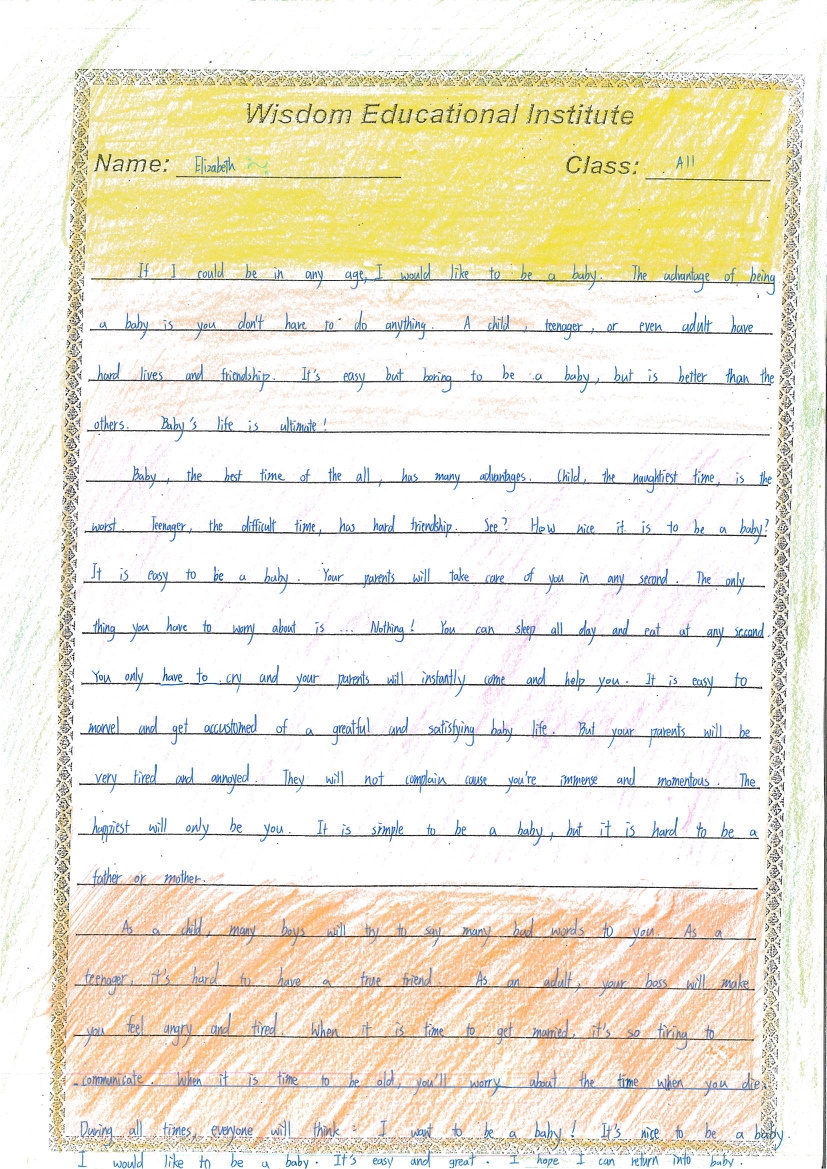 Wisdom Educational Institute
Name: Elizabeth Class: A11
If I could be in any age, I would like to be a baby. The advantage of being
a baby is you don't have to do anything. A child, teenager, or even adult have
hard lives and friendship. It's easy but boring to be a baby, but is better than the
others. Baby's life is ultimate!
Baby, the best time of the all, has many advantages. Child, the naughtiest time, is the
worst. Teenager, the difficult time, has hard friendship. See? How nice it is to be a baby?
It is easy to be a baby. Your parents will take care of you in any second. The only
thing you have to worry about is ... Nothing! You can sleep all day and eat at any second.
You only have to cry and your parents will instantly come and help you. It is easy to
marvel and get accustomed of a greatful and satisfying baby life. But your parents will be
very tired and annoyed. They will not complain cause you're immense and momentous. The
happiest will only be you. It is simple to be a baby, but it is hard to be a
father or mother.
As a child, many boys will try to say many bad words to you. As a
teenager, it's hard to have a true friend. As an adult, your boss will make
you feel angry and tired. When it is time to get married, it's so tiring to
communicate. When it is time to be old, you'll worry about the time when you die.
During all times, everyone will think: I want to be a baby! It's nice to be a baby.
I would like to be a baby. It's easy and great. I hope I can return into baby.